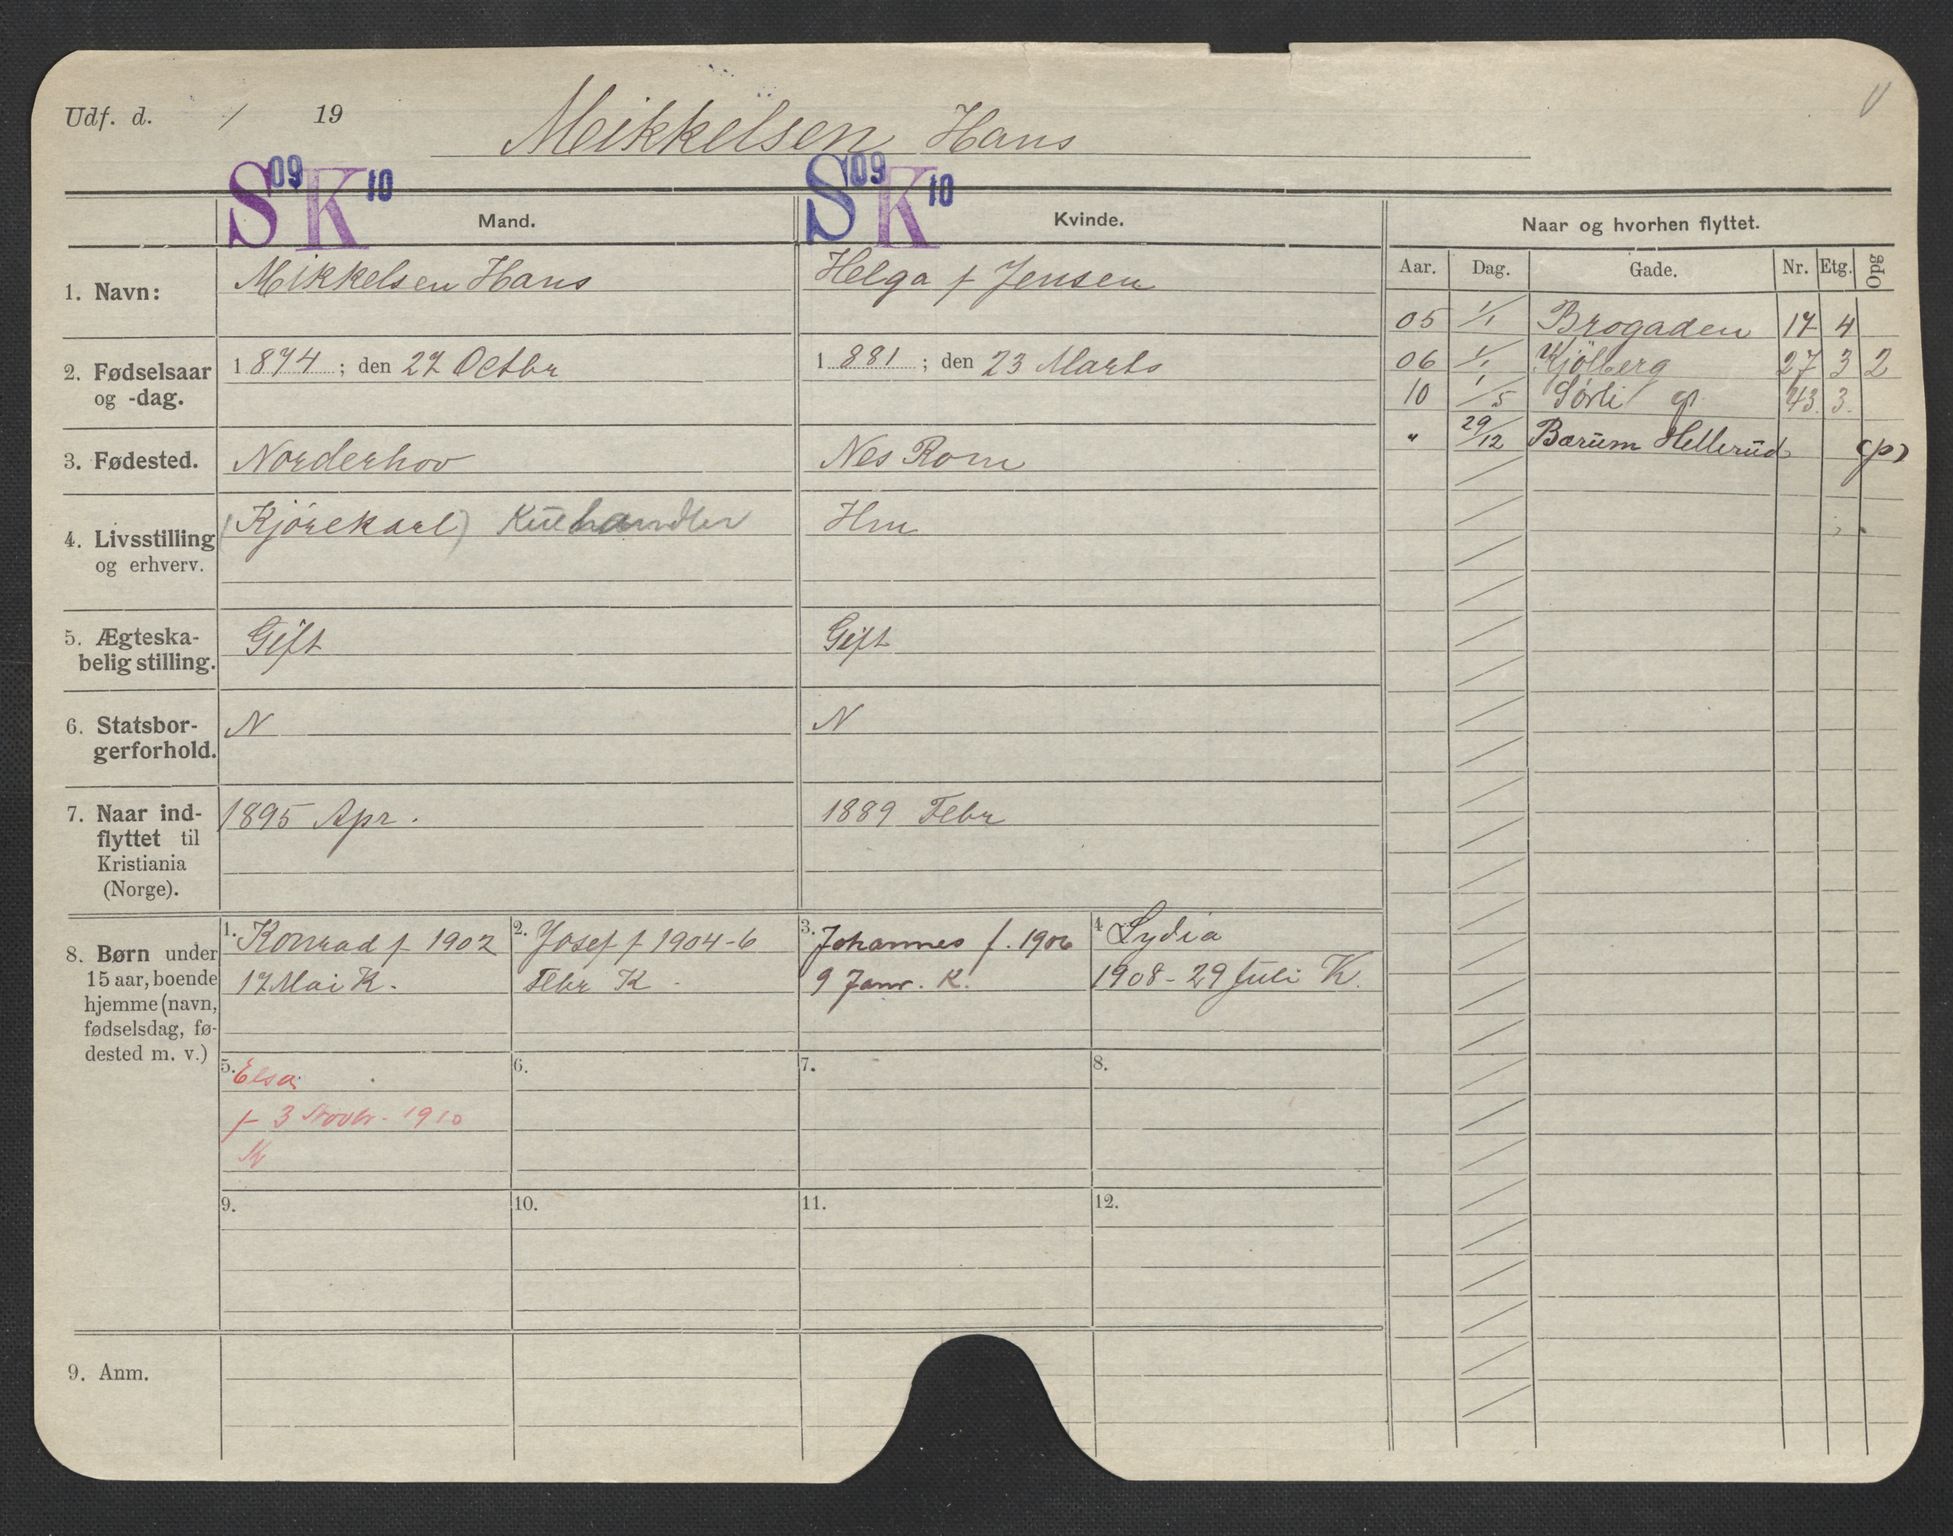 Udf. d. / 19
Mikkelsen Hans
S 09 K 10 Mand.
S 09 K 10 Kvinde.
Naar og hvorhen flyttet.
Aar. Dag. Gade. Nr. Etg. Opg
1. Navn: Mikkelsen Hans
Helga f Jensen
05 1/1 Brogaden 17 4
2. Fødselsaar og -dag.
1 874 ; den 27 Octbr
1 881 ; den 23 Marts
06 1/1 Kjölberg 27 3 2
10 1/5 Sørli gt 43. 3.
" 29/12 Bærum Hellerud (p)
3. Fødested. Norderhov
Nes Rom
4. Livsstilling og erhverv.
(Kjørekarl) Kulhandler
Hm
5. Ægteska-
belig stilling.
Gift
Gift
6. Statsbor-
gerforhold.
N
N
7. Naar ind-
flyttet til
Kristiania
(Norge).
1895 Apr.
1889 Febr
8. Børn under
15 aar, boende
hjemme (navn,
fødselsdag, fø-
dested m. v.)
1. Konrad f 1902
17 Mai K.
2. Josef f 1904-6
Febr K.
3. Johannes f. 1906
9 Janr. K.
4 Lydia
1908 - 29 Juli K.
5. Elsa
f 3 Novbr. 1910
K
6.
7.
8.
9.
10.
11.
12.
9. Anm.